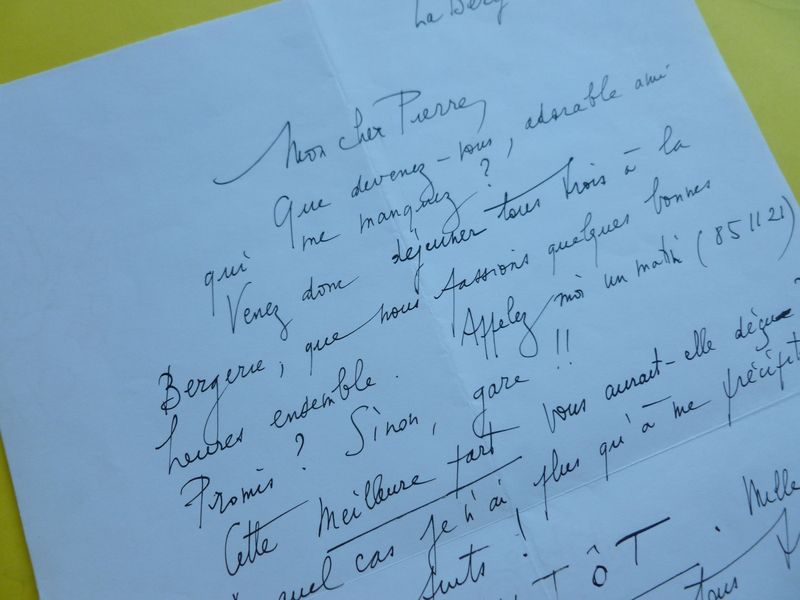 La Berg
Mon cher Pierre,
Que devenez-vous, adorable ami
qui me manquez ?
Venez donc déjeuner tous trois à la
Bergerie, que nous passions quelques bonnes
heures ensemble. Appelez moi un matin (851121)
Promis ? Sinon, gare !!
Cette Meilleure part vous aurait-elle déçu ?
quel cas je n'ai plus qu'à me précipit
! Mille
TÔT.
tous